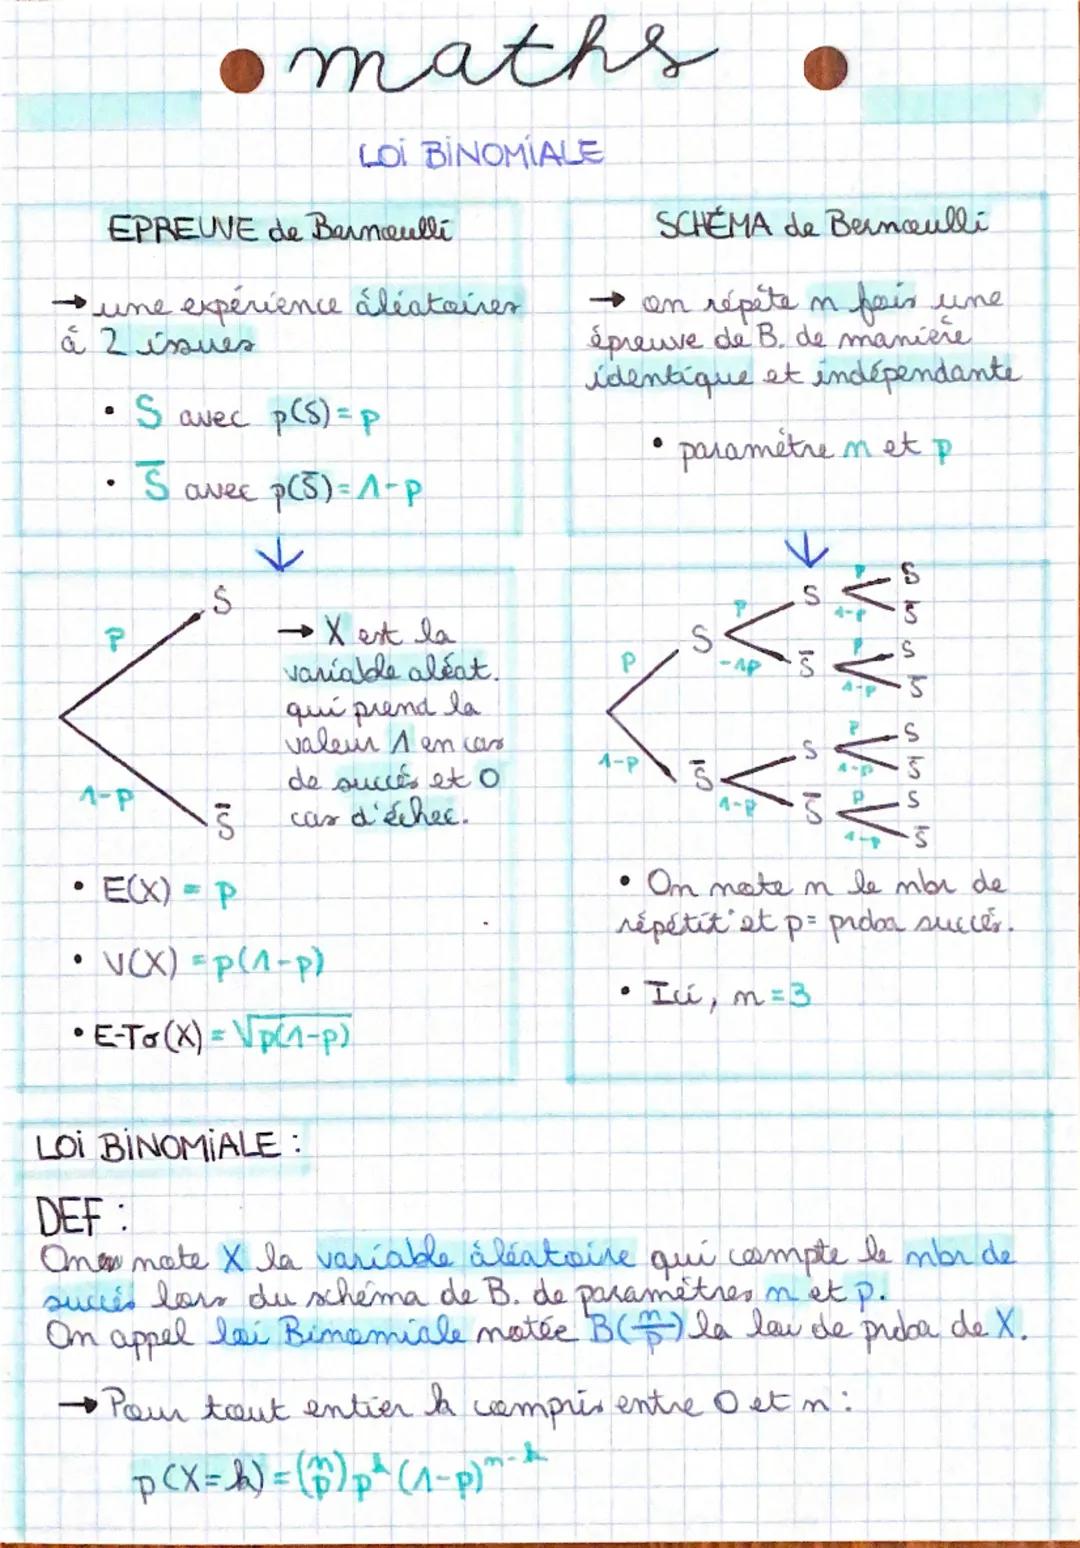 maths
LOI BINOMIALE
EPREUVE de Bernoulli
→ une expérience áléatoires
à 2 issues
• S avec p(S) = p
• S̅ avec p(S̅) = 1-p
SCHÉMA de Bernoulli
→ on répéte n fois une
épreuve de B. de manière
identique et indépendante
• paramétre n et p
↓
↓
S
p
1-p
S̅
→ X est la
variable aléat.
qui prend la
valeur 1 en cas
de succés et 0
cas d'échec.
• E(X) = p
• V(X) = p(1-p)
• E-Tσ(X) = √p(1-p)
p S p S p S
1-p S̅
-1p S̅ p S
1-p S̅
1-p S̅ S p S
1-p S̅
1-p S̅ p S
1-p S̅
• On note n le nbr de
répétit° et p = proba succés.
• Ici, n = 3
LOI BINOMIALE :
DEF :
On note X la variable áléatoire qui compte le nbr de
succés lors du schéma de B. de paramétres n et p.
On appel loi Binomiale notée B(n/p) la loi de proba de X.
→ Pour tout entier k compris entre 0 et n :
p(X=k) = (n p) p^k (1-p)^n-k